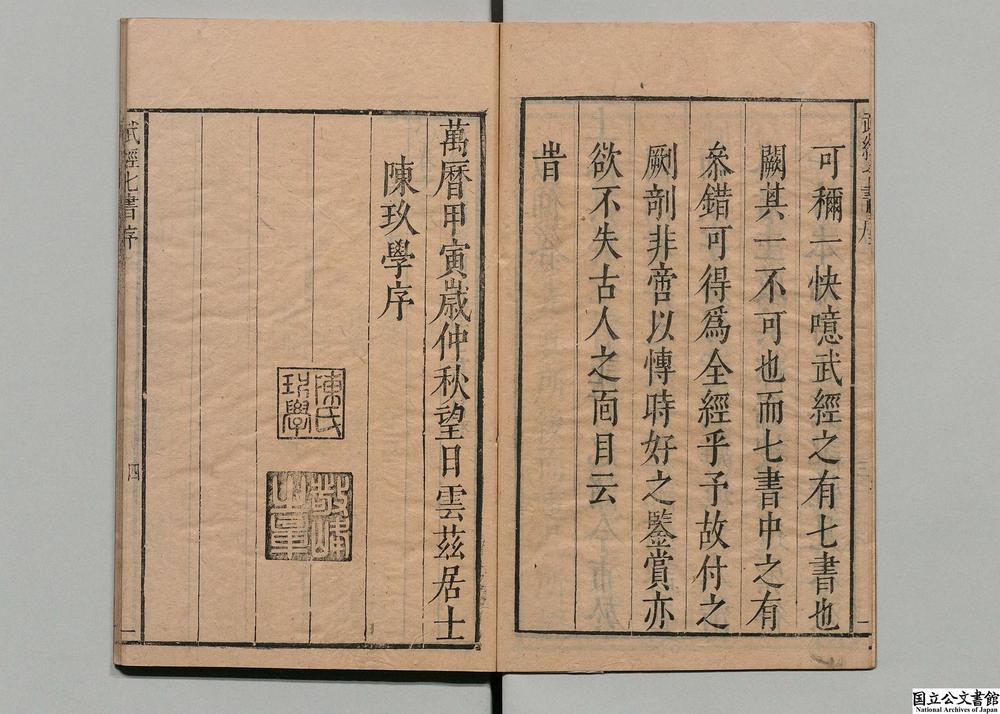 武經七書序
可稱一快噫武經之有七書也
闕其一不可也而七書中之有
叅錯可得爲全經乎予故付之
劂剞非啻以慱時好之鑒賞亦
欲不失古人之面目云
旹
萬曆甲寅歳仲秋望日雲茲居士
陳玖學序
陳氏
玖學
武經七書序
四
国立公文書館
National Archives of Japan